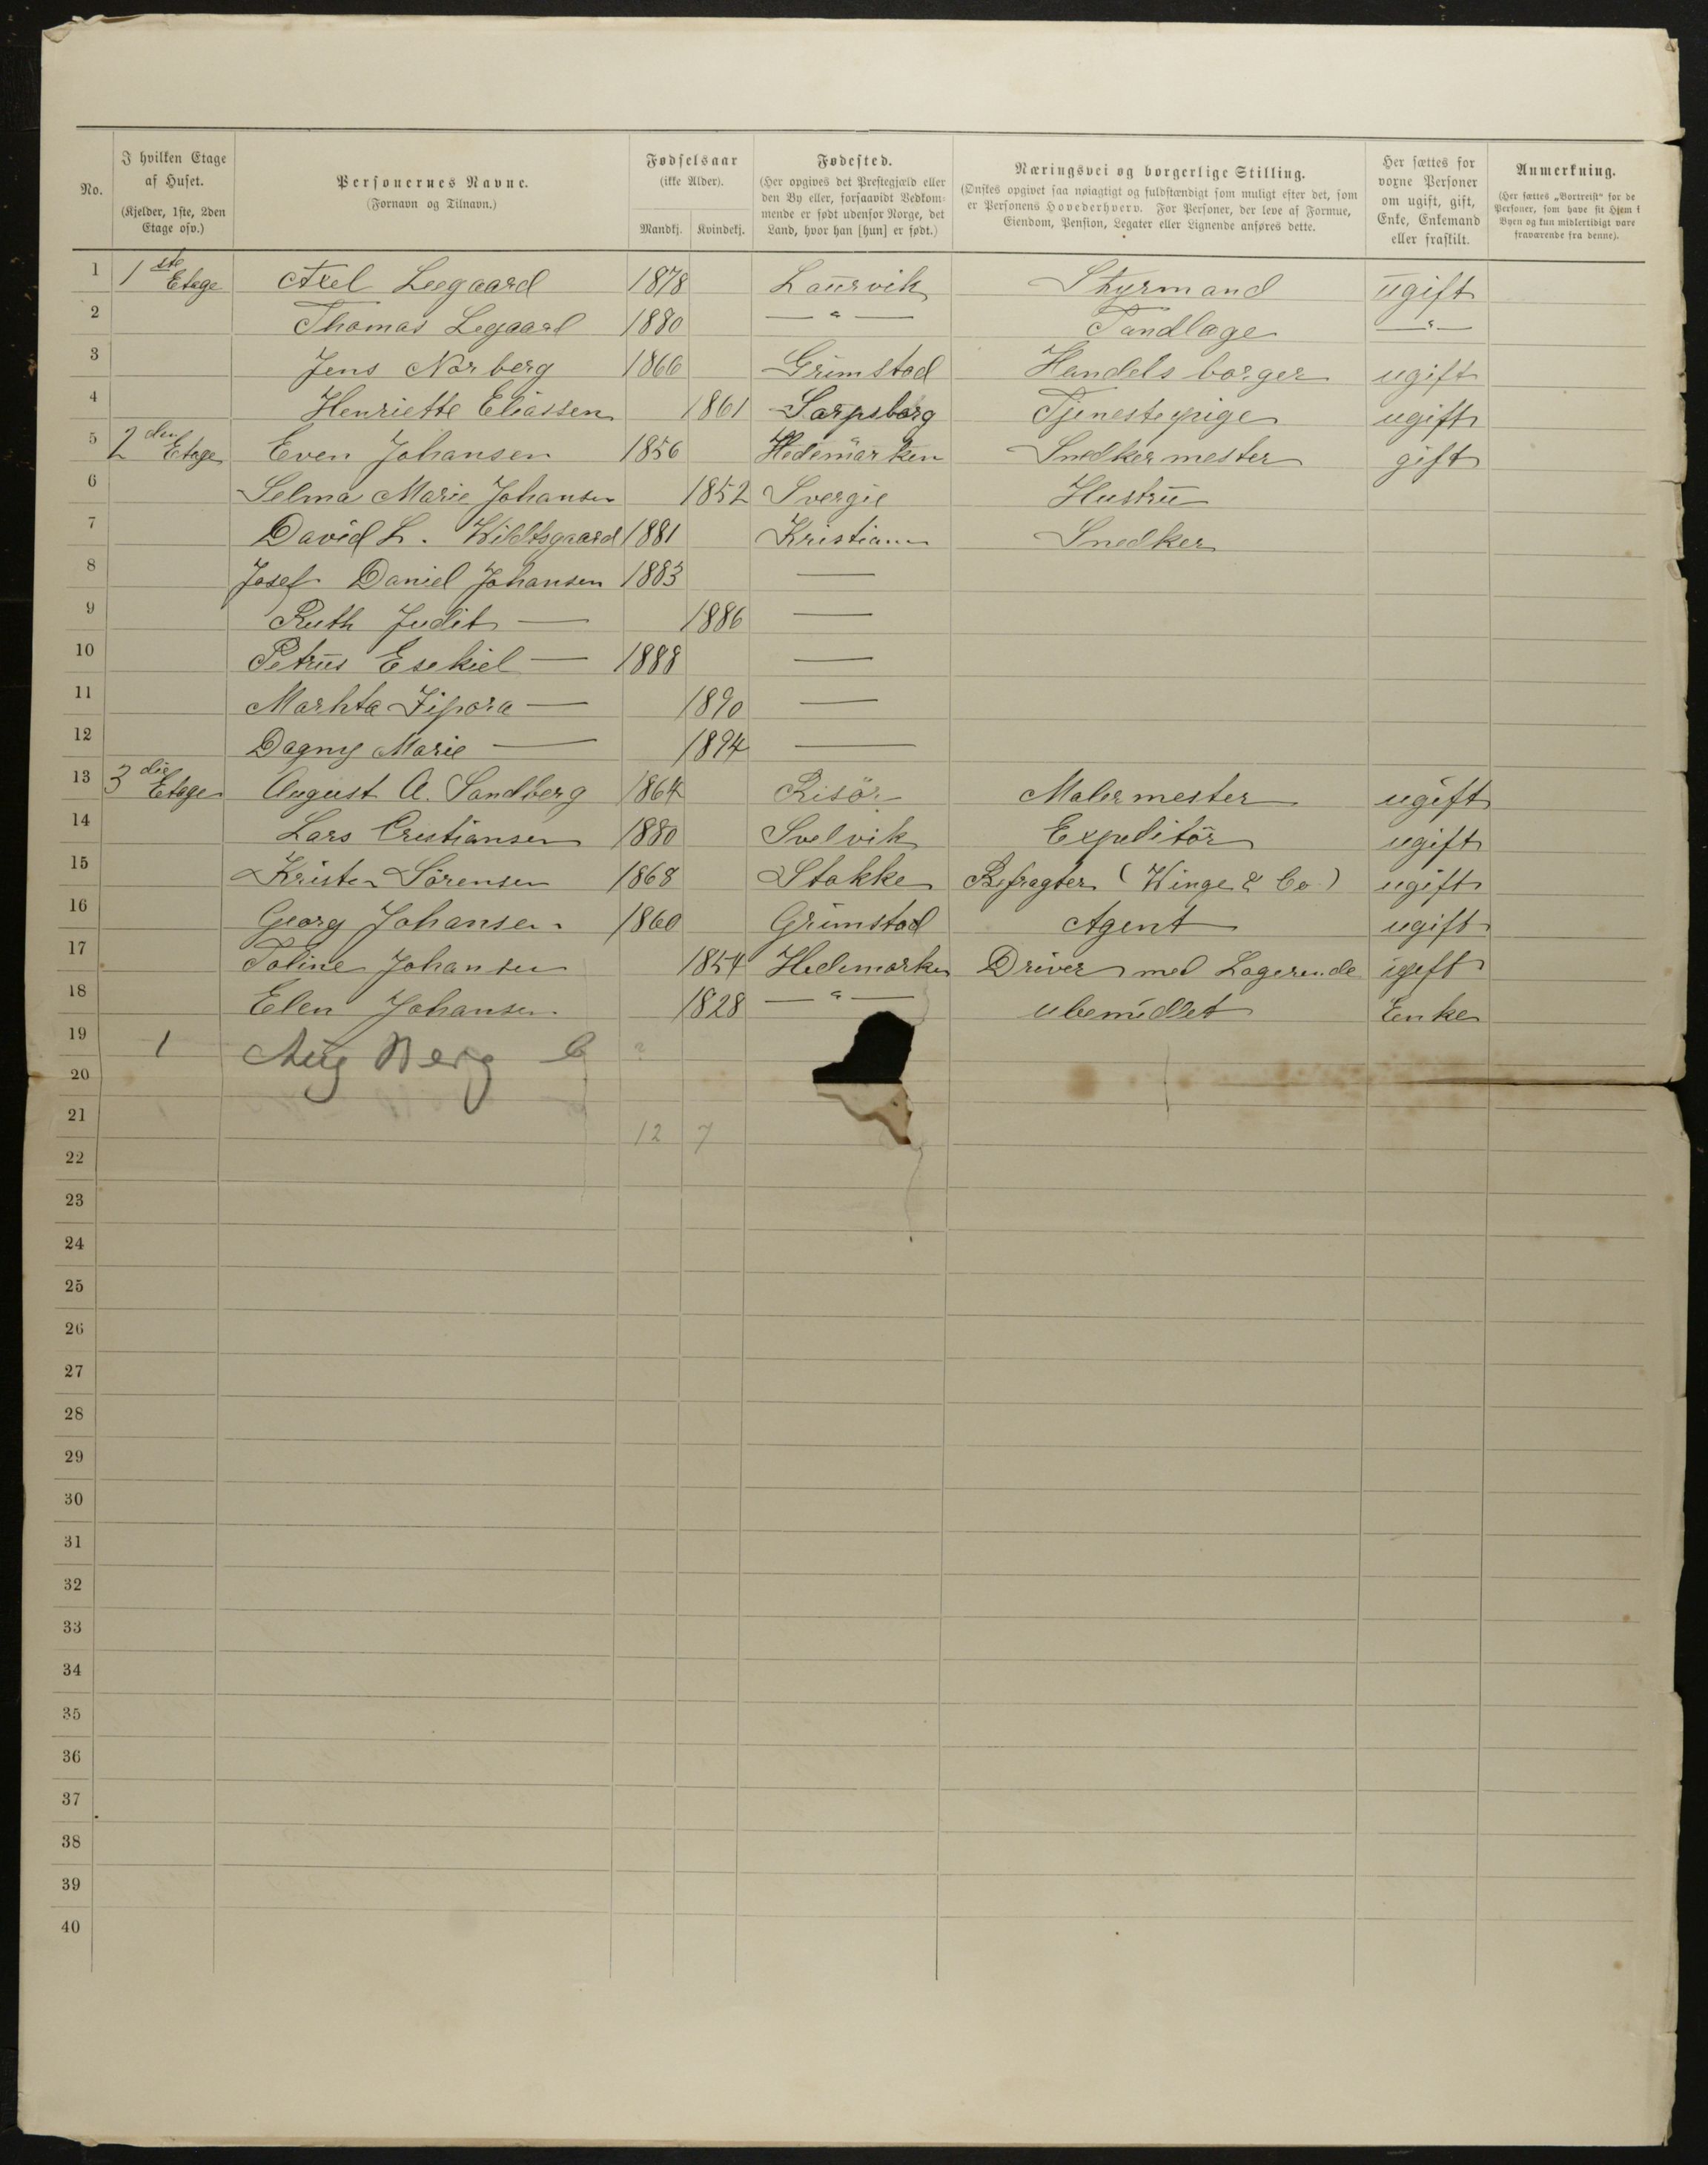 No.
I hvilken Etage af Huset.
(Kjelder, 1ste, 2den Etage osv.)
Personernes Navne.
(Fornavn og Tilnavn.)
Fødselsaar
(ikke Alder).
Mandkj. Kvindekj.
Fødested.
(Her opgives det Prestegjæld eller den By eller, forsaavidt Vedkommende er født udenfor Norge, det Land, hvor han [hun] er født.)
Næringsvei og borgerlige Stilling.
(Ønskes opgivet saa nøiagtigt og fuldstændigt som muligt efter det, som er Personens Hovederhverv. For Personer, der leve af Formue, Eiendom, Pension, Legater eller Lignende anføres dette.
Her sættes for voxne Personer om ugift, gift, Enke, Enkemand eller fraskilt.
Anmerkning.
(Her sættes „Bortreist“ for de Personer, som have sit Hjem i Byen og kun midlertidigt vare fraværende fra denne).
1 1ste Etage Axel Leegaard 1878 Laurvik Styrmand ugift
2 Thomas Legaard 1880 — " — Tandlæge — " —
3 Jens Norberg 1866 Grimstad Handels borger ugift
4 Henriette Eliassen 1861 Sarpsborg Tjenestepige ugift
5 2den Etage Even Johansen 1856 Hedemarken Snedkermester gift
6 Selma Marie Johansen 1852 Svergie Hustru
7 David L. Wildtsgaard 1881 Kristiania Snedker
8 Josef Daniel Johansen 1883 —
9 Ruth Judit — 1886 —
10 Petrus Esekiel — 1888 —
11 Marhta Zipora — 1890 —
12 Dagny Marie — 1894 —
13 3die Etage August A. Sandberg 1864 Risör Malermester ugift
14 Lars Cristiansen 1880 Svelvik Expeditör ugift
15 Kristen Sörensen 1868 Stokke Befragter (Winge & Co) ugift
16 Georg Johansen 1860 Grimstad Agent ugift
17 Toline Johansen 1854 Hedemarken Driver med Logerende ugift
18 Elen Johansen 1828 — " — ubemidlet Enke
19 1 Aug Berg ?
20
21 12 7
22
23
24
25
26
27
28
29
30
31
32
33
34
35
36
37
38
39
40